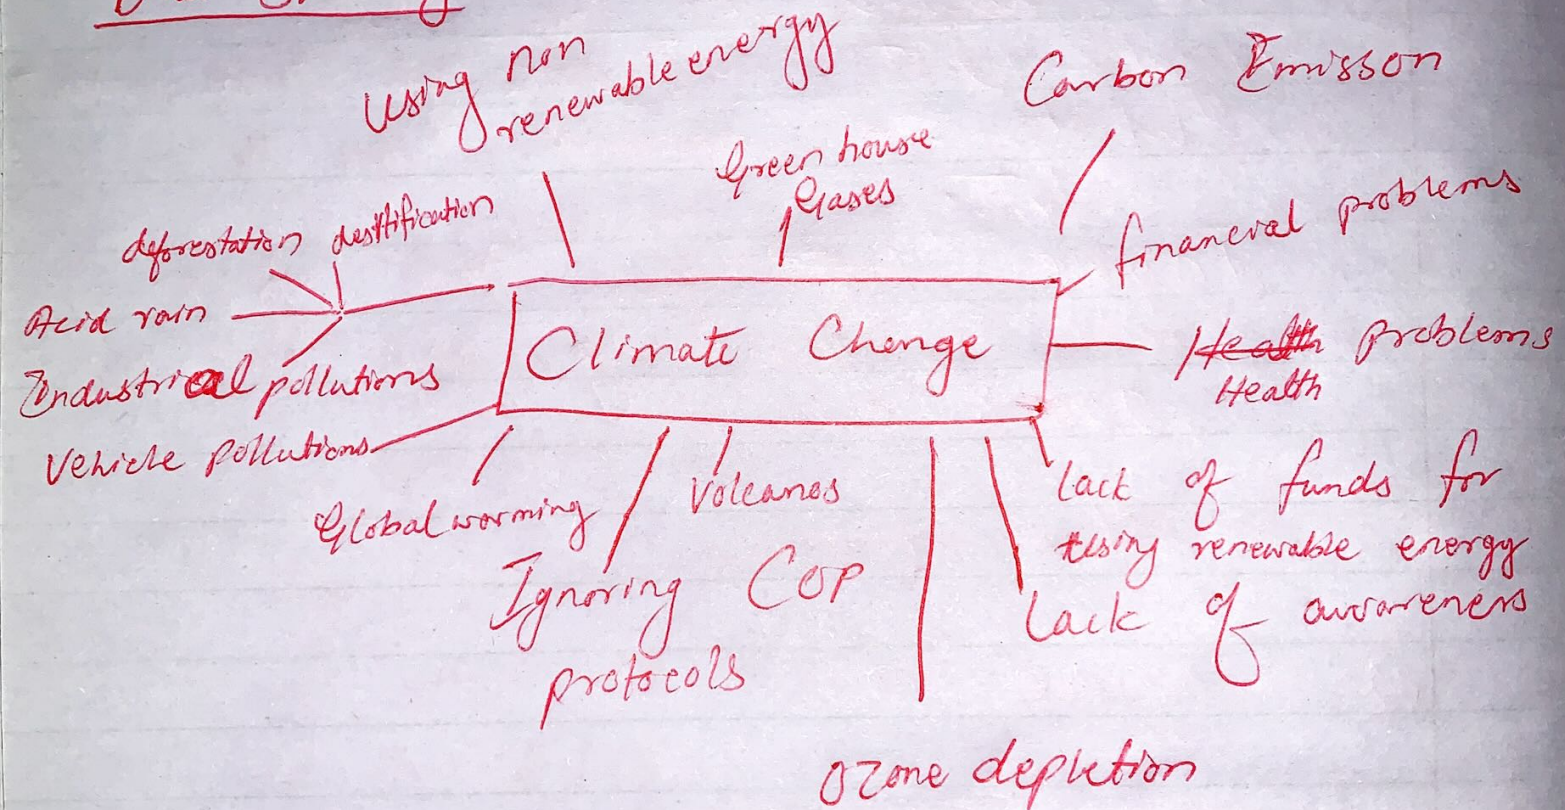 Using non
renewable energy
Carbon Emisson
Green house
Gases
financial problems
deforestation
Acid rain
Industrial pollutions
Vehicle pollutions
Climate Change
Health problems
Health
Global worming
Volcanos
Ignoring COP
protocols
Lack of funds for
using renewable energy
Lack of awareness
Ozone depletion